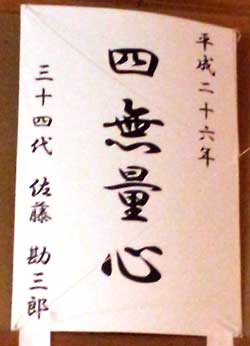 平成二十六年
四無量心
三十四代 佐藤 勘三郎